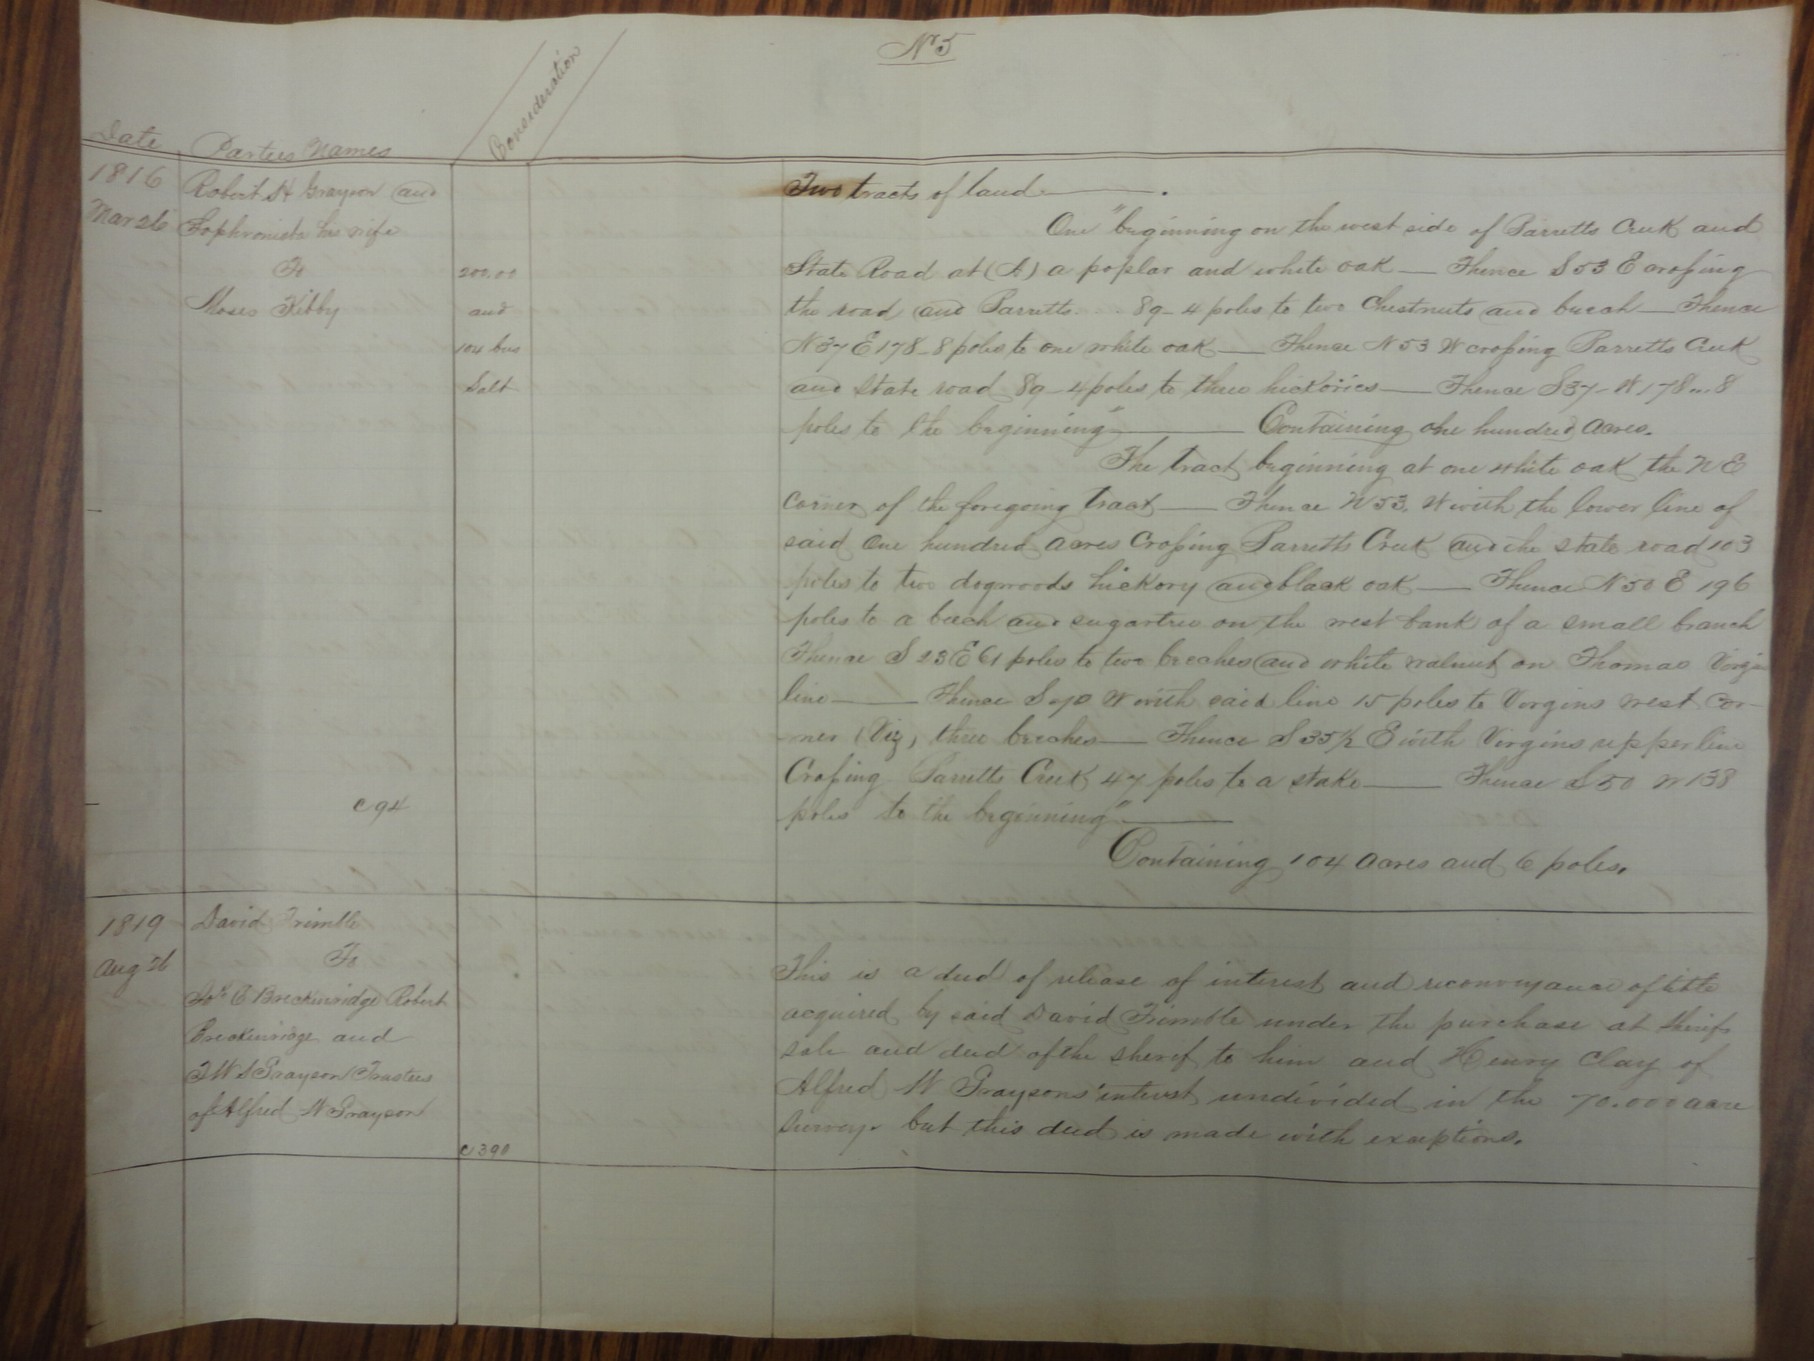 No 5
Date Parties Names Consideration
1816
Mar 26
Robert H Grayson and
Sophronisba his wife
To
Moses Kibby
200.00
and
104 bus
Salt
C 94
Two tracts of land.
One "beginning on the west side of Parretts Creek and
State Road at (A) a poplar and white oak — Thence S 53 E crossing
the road and Parretts .... 89-4 poles to two Chestnuts and beach — Thence
N 37 E 178-8 poles to one white oak — Thence N 53 W crossing Parretts Creek
and State road 89-4 poles to three hickories — Thence S 37-W 178...8
poles to the beginning" — Containing one hundred acres.
The tract beginning at one white oak the N E
corner of the foregoing tract — Thence N 53. W with the lower line of
said One hundred acres Crossing Parretts Creek and the state road 103
poles to two dogwoods hickory and black oak — Thence N 50 E 196
poles to a beech and sugartree on the west bank of a small branch
Thence S 23 E 61 poles to two beeches and white walnut on Thomas Virgin
line — Thence S W with said line 15 poles to Virgins west cor-
ner (Viz, three beeches — Thence S 35 1/2 E with Virgins upper line
Crossing Parretts Creek 47 poles to a stake — Thence S 50 W 138
poles to the beginning" —
Containing 104 acres and 6 poles.
1819
Aug 26
David Trimble
To
Jos C Breckinridge Robert
Breckinridge and
Grayson Trustees
of Alfred W Grayson
C 390
This is a deed of release of interest and reconveyance of title
acquired by said David Trimble under the purchase at Sherifs
sale and deed of the sherif to him and Henry Clay of
Alfred W Graysons' interest undivided in the 70.000 acre
survey. but this deed is made with exceptions.